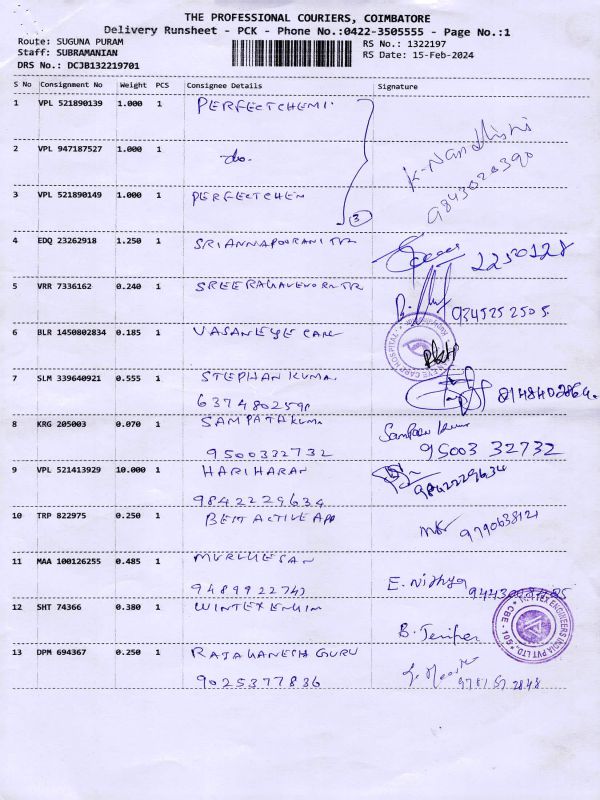 THE PROFESSIONAL COURIERS, COIMBATORE
Delivery Runsheet - PCK - Phone No.:0422-3505555 - Page No.:1
Route: SUGUNA PURAM
Staff: SUBRAMANIAN
DRS No.: DCJB132219701
RS No.: 1322197
RS Date: 15-Feb-2024
S No Consignment No Weight PCS Consignee Details Signature
1 VPL 521890139 1.000 1 PERFECTCHEMI.
2 VPL 947187527 1.000 1 do.
K. Nandhini
9843020390
3 VPL 521890149 1.000 1 PERFECTCHEM
3
4 EDQ 23262918 1.250 1 SRIANNAPOORANI 2250128
5 VRR 7336162 0.240 1 934525 2505.
6 BLR 1450802834 0.185 1 VASANEYE CARE
EYE CARE HOSPITAL
7 SLM 339640921 0.555 1 STEPHAN KUMA
6374802590
8148402864.
8 KRG 205003 0.070 1 SAMPATHKUMA
9500332732
95003 32732
9 VPL 521413929 10.000 1 HARIHARAN
9842229634
9842229634
10 TRP 822975 0.250 1 BEST ACTIVE APP
9790638121
11 MAA 100126255 0.485 1 MURUGESAN
9489922743
E. Nithya
12 SHT 74366 0.380 1 WINTEX ENGIN
B. Jenifer
ENGINEERS INDIA PVT LTD
CBE
13 DPM 694367 0.250 1 RAJAGANESH GURU
9025377836